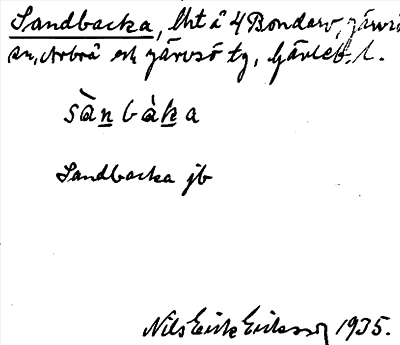 Sandbacka, lht å 4 Bondarv, Järvsö
sn, Arbrå och Järvsö tg, Gävleb. l.
sànbàka
Sandbacka jb
Nils Erik Eriksson 1935.